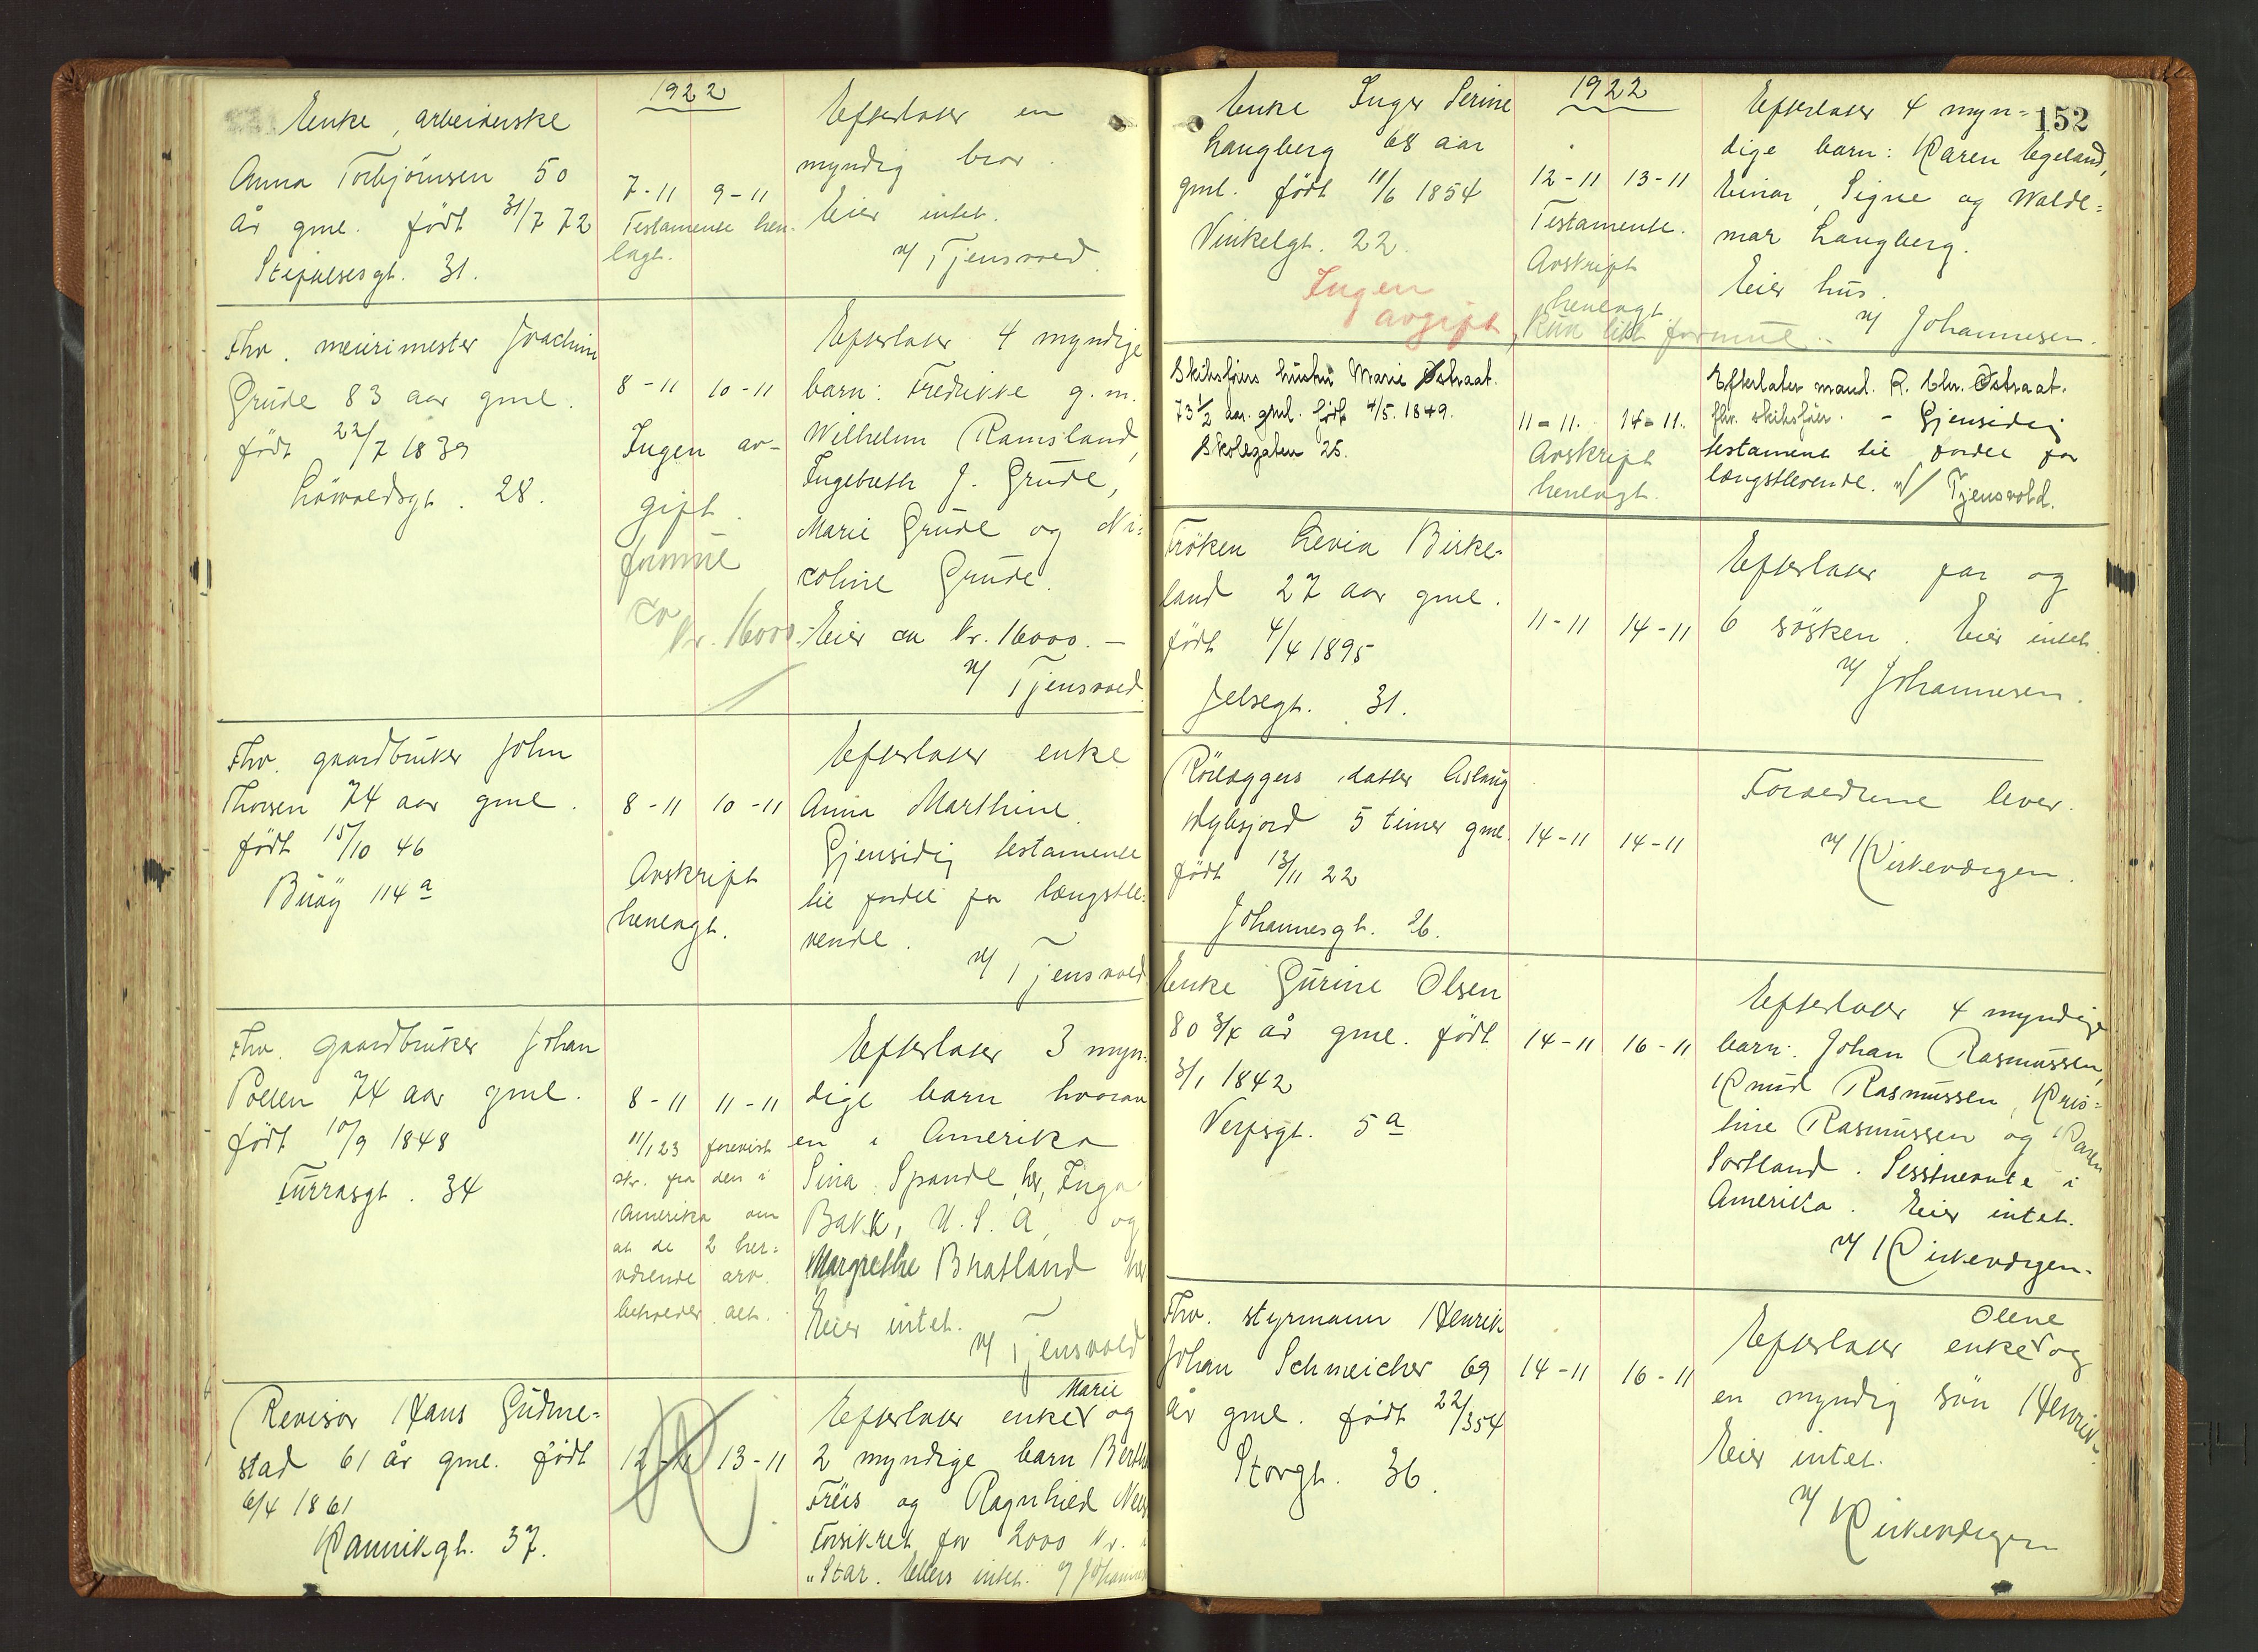 1922
Enke, arbeiderske
Anna Torbjörnsen 50
år gml. født 31/7 72
Stiftelsesgt. 31.
7-11 9-11
Testamente hen-
lagt.
Efterlater en
myndig bror.
Eier intet.
v/ Tjensvold.
Fhv. meierimester Joachim
Grude 83 aar gml.
født 22/7 1839
Lövvoldsgt. 28.
8-11 10-11
Ingen av-
gift.
formue
ca
kr. 16000.-
Efterlater 4 myndige
barn: Fredrikke g. m.
Wilhelm Ramsland,
Ingebreth J. Grude,
Marie Grude og Ni-
coline Grude.
Eier ca kr. 16000.-
v/ Tjensvold.
Fhv. gaardbruker John
Thorsen 74 aar gml.
født 15/10 46
Buøy 114a
8-11 10-11
Avskrift
henlagt.
Efterlater enke
Anna Marthine.
Gjensidig testamente
til fordel for længstle-
vende.
v/ Tjensvold
Fhv. gaardbruker Johan
Pollen 74 aar gml.
født 10/9 1848
Furrasgt. 34
8-11 11-11
11/1 23 forevist
skr. fra den i
Amerika om
at de 2 her-
værende arv.
beholder alt.
Efterlater 3 myn-
dige barn hvorav
en i Amerika
Sina Spande, her, Inga
Bakk, U.S.A, og
Margrethe Bratland her
Eier intet.
v/ Tjensvold
Revisor Hans Gudme-
stad 61 år gml. født
6/4 1861
Kannikgt. 37.
12-11 13-11
Efterlater enke Marie og
2 myndige barn Bertha
Friis og Ragnhild
Forsikret for 2000 kr. i
"Star. Ellers intet. v/ Johannesen
152
1922
Enke Inger Serine
Langberg 68 aar
gml. født 11/6 1854
Vinkelgt. 22.
Ingen
avgift, kun litt formue.
12-11 13-11
Testamente.
Avskrift
henlagt.
Efterlater 4 myn-
dige barn: Karen Egeland,
Einar, Signe og Walde-
mar Langberg.
Eier hus.
v/ Johannesen.
Skibsførers hustru Marie Østraat.
73 1/2 aar. gml. født 4/5. 1849.
Skolegaten 25.
11-11. 14-11.
Avskrift
henlagt.
Efterlater mand. R. Chr. Østraat.
fhv. skibsfører. - Gjensidig
testament til fordel for
længstlevende. v/ Tjensvold.
Fröken Levia Birke-
land 27 aar gml.
født 4/4 1895
Jelsegt. 31.
11-11 14-11
Efterlater far og
6 søsken. Eier intet.
v/ Johannesen.
Rörlæggers datter Aslaug
Myhsjord 5 timer gml.
født 13/11 22
Johannesgt. 26.
14-11 14-11
Forældrene lever.
v/ Kirkeværgen.
Enke Gurine Olsen
80 3/4 år gml. født
3/1 1842
Verftsgt. 5a
14-11 16-11
Efterlater 4 myndige
barn: Johan Rasmussen,
Knud Rasmussen, Kris-
tine Rasmussen og Karen
Sortland. Sisstnevnte i
Amerika. Eier intet.
v/ Kirkevergen.
Fhv. styrmann Henrik
Johan Schmeicher 69
år gml. født 22/3 54
Storgt. 36.
14-11 16-11
Efterlater enke Olene og
en myndig sön Henrik.
Eier intet.
v/ Kirkevergen